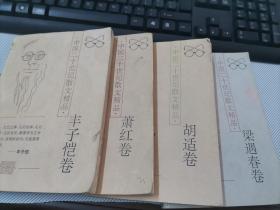 中国二十世纪散文精品·
丰子恺卷
中国二十世纪散文精品·
萧红卷
中国二十世纪散文精品·
胡适卷
中国二十世纪散文精品·
梁遇春卷